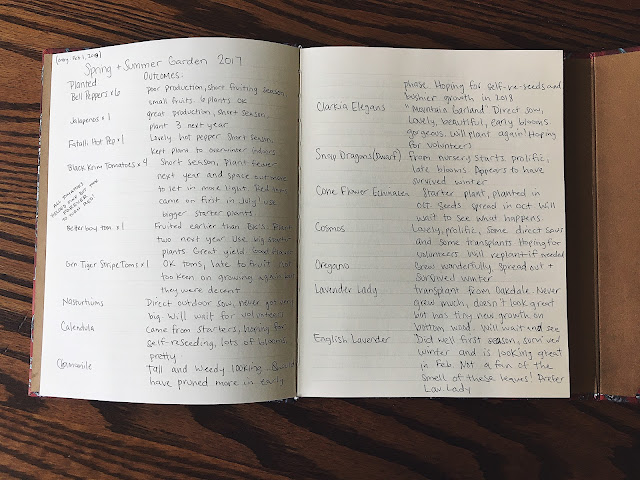 (irreg. Feb 1, 2018)
Spring + Summer Garden 2017
Planted Outcomes:
Bell Peppers x6 poor production, short fruiting season,
small fruits. 6 plants OK
Jalapenos x1 great production, short season,
plant 3 next year.
Fatalii Hot Pep x1 Lovely hot pepper. Short season,
kept plant to overwinter indoors.
Black Krim Tomatoes x4 Short season, Plant fewer
next year and space out more
to let in more light. Red
came on first in July! Use
bigger starter plants.
ALL TOMATOES
FOREVER
Better boy tom x1 Fruited earlier than
two next year. Use big
plants. Great yield. Good
Grn Tiger Stripe Toms x1 OK toms, late to fruit
too keen on growing again
they were decent
Nasturtiums Direct outdoor sow, never got
big. Will wait for volunteers
Calendula Came from starters, hoping for
self-reseeding, lots of blooms,
pretty
Chamomile Tall and weedy looking.
have pruned more in early
phase. Hoping for self-re-seeds and
bushier growth in 2018
Clarkia Elegans "Mountain Garland" Direct sow,
Lovely, beautiful, early blooms
gorgeous. Will plant again! Hoping
for volunteers.
Snap Dragons (Dwarf) From nursery starts, prolific,
late blooms. Appears to have
survived winter
Cone Flower Echinacea Starter plant, planted in
Oct. Seeds spread in Oct. Will
wait to see what happens.
Cosmos Lovely, prolific, Some direct sows
and some transplants. Hoping for
volunteers. Will replant if needed
Oregano Grew wonderfully, spread out +
survived winter
Lavender Lady transplant from Oakdale. Never
grew much, doesn't look great
but has tiny new growth on
bottom wood. Will wait and see
English Lavender Did well first season, survived
winter and is looking great
in Feb. Not a fan of the
smell of these leaves! Prefer
Lav. Lady